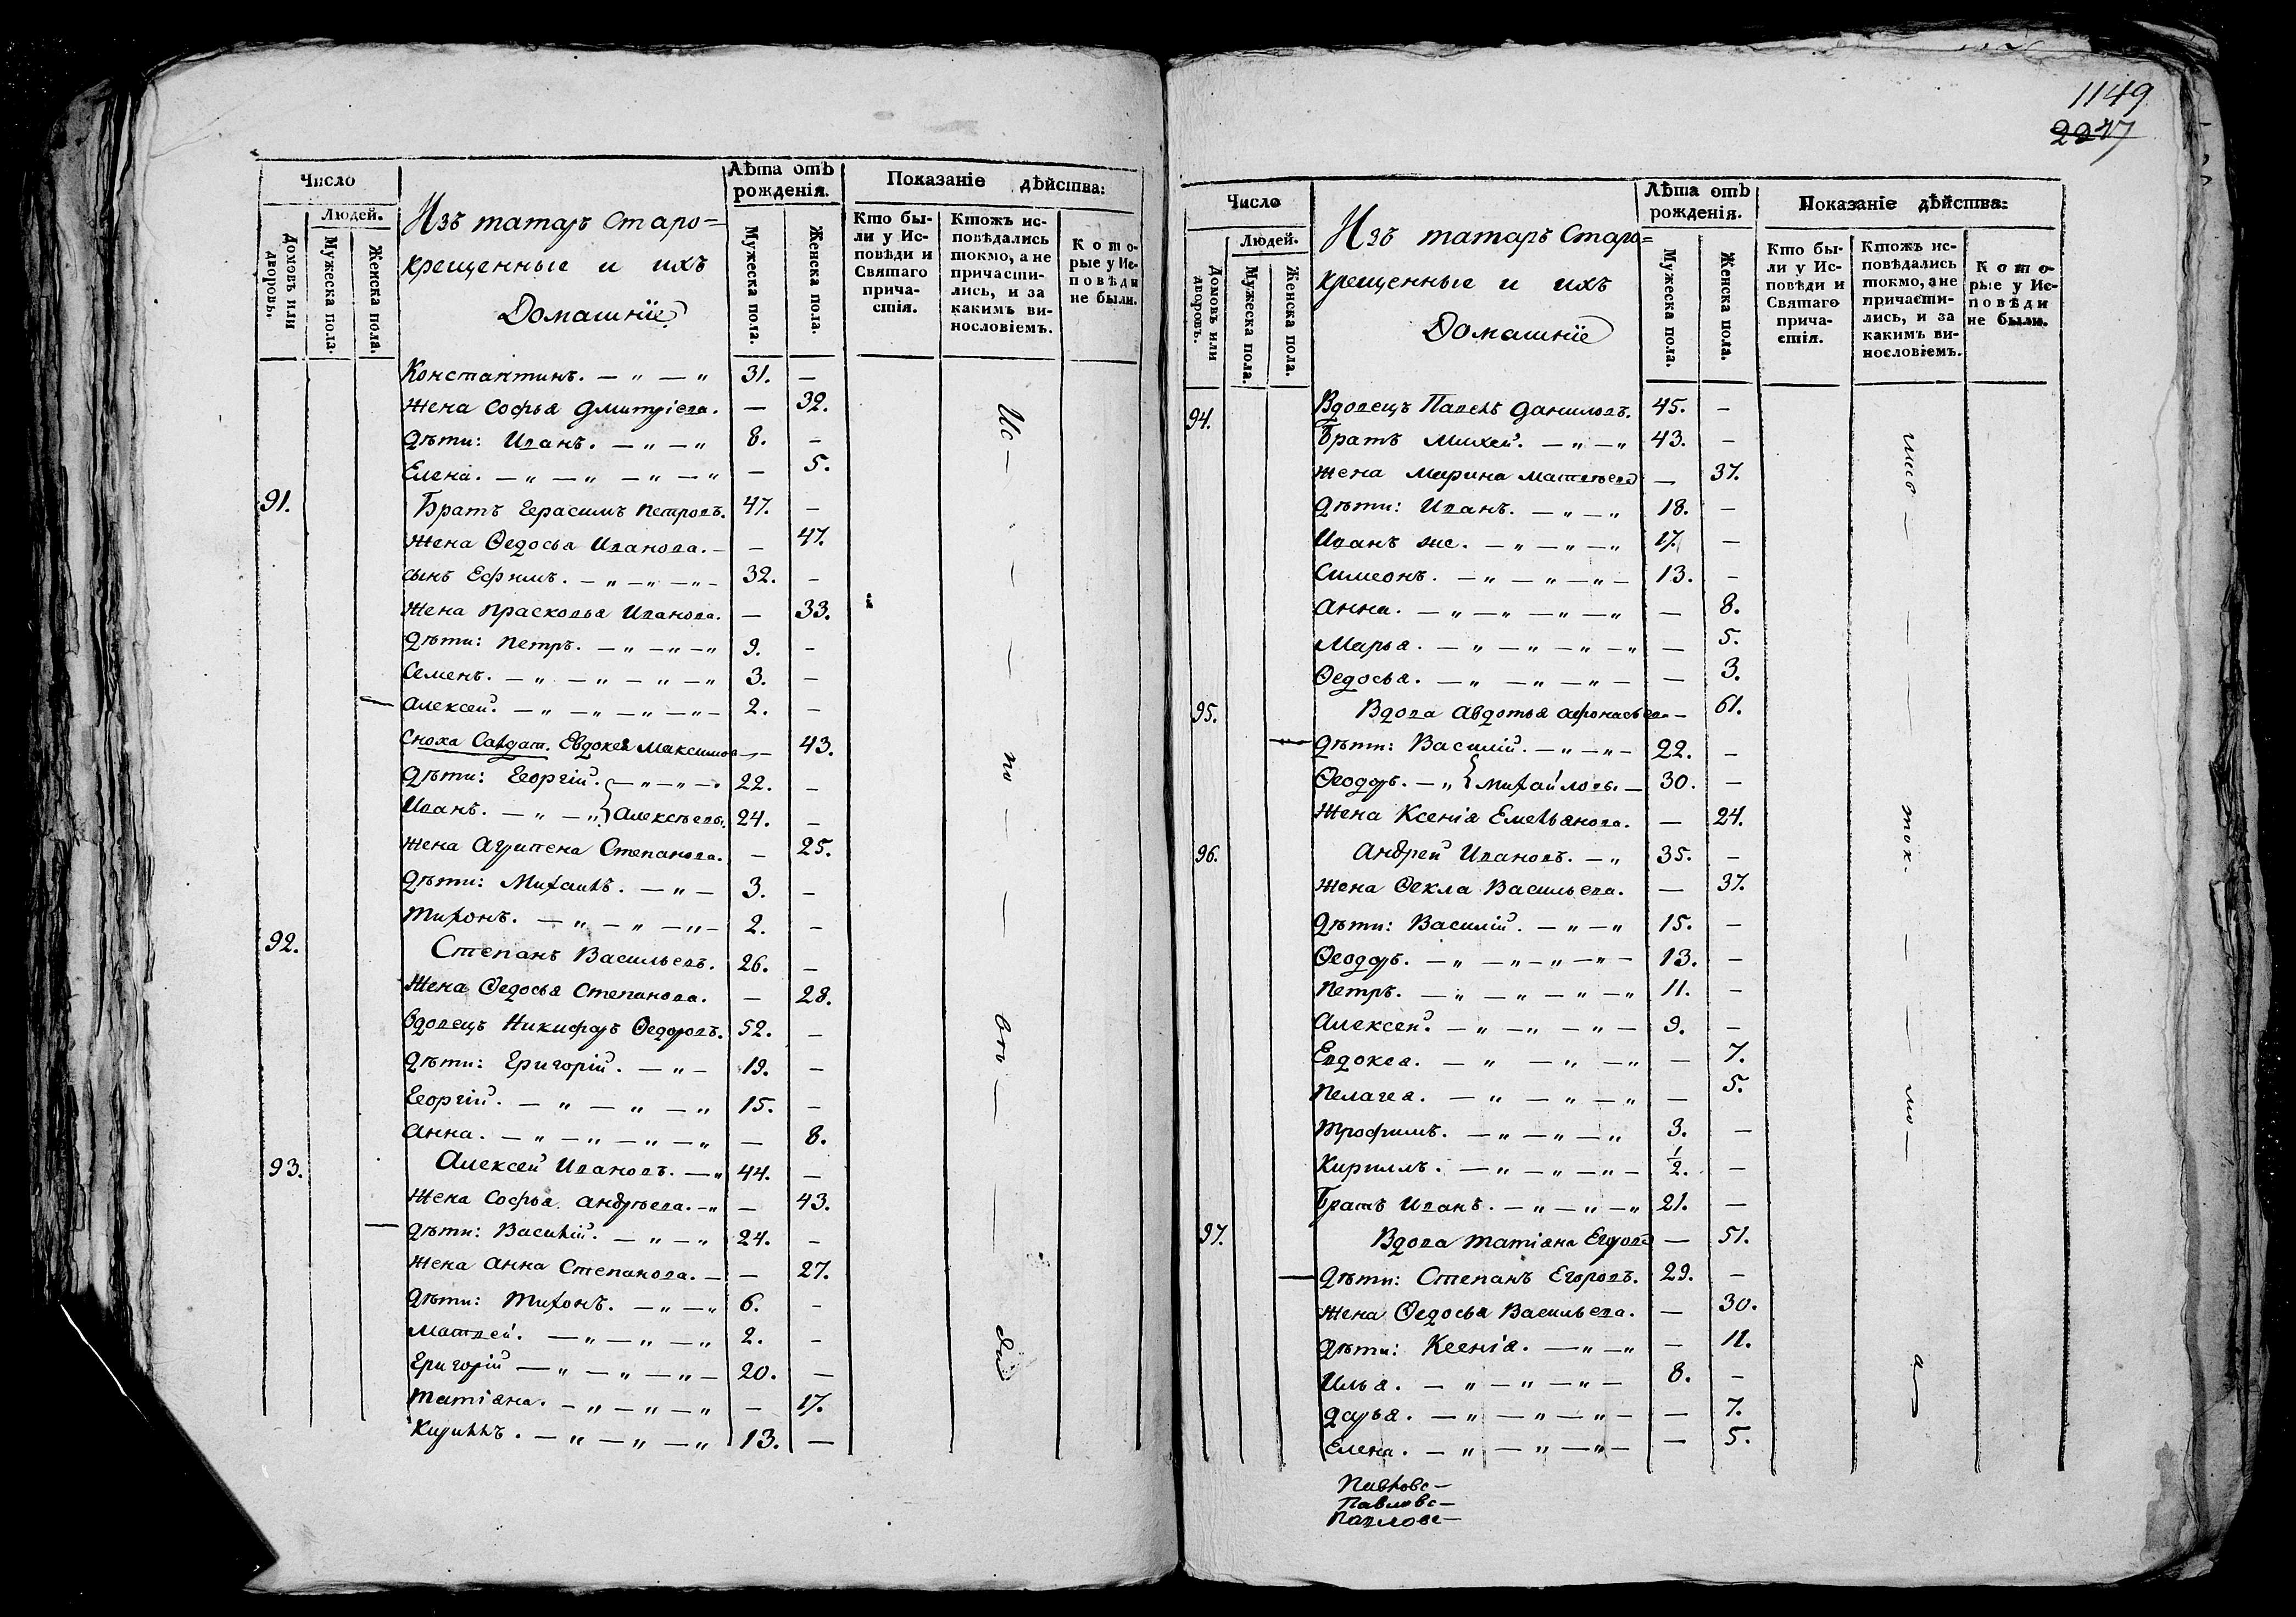 Число
Людей.
Домовъ или дворовъ.
Мужеска пола.
Женска пола.
Изъ татаръ старо=
крещенные и ихъ
Домашніе
Лѣта отъ рожденія.
Мужеска пола.
Женска пола.
Показаніе дѣйства:
Кто бы-
ли у Ис-
повѣди и
Святаго
прича-
стія.
Ктожъ ис-
повѣдались
токмо, а не
причасти-
лись, и за
какимъ ви-
нословіемъ.
Кото-
рые у Ис-
повѣди
не были.
Константинъ. — „ — „ 31. —
Жена Софья Дмитріева. — 32.
Дѣти: Иванъ. — „ — „ 8. —
Елена. — „ — „ — „ — „ — 5.
91. Братъ Герасимъ Петровъ. 47. —
Жена Ѳедосья Иванова. — — 47.
сынъ Ефимъ. — „ — „ — „ — 32. —
Жена Прасковья Иванова. — 33.
Дѣти: Петръ. — „ — „ — „ 9. —
Семенъ. — „ — „ — „ — „ 3. —
Алексей. — „ — „ — „ — „ — 2. —
Сноха Салдат. Евдокея Максимова — 43.
Дѣти: Георгій. — „ — „ — 22. —
Иванъ. — „ — „ } Алексѣевы. 24. —
Жена Агрипена Степанова. — 25.
Дѣти: Михаилъ. — „ — 3. —
Тихонъ. — „ — „ — „ — 2. —
92. Степанъ Васильевъ. 26. —
Жена Ѳедосья Степанова. — 28.
Вдовецъ Никифоръ Ѳедоровъ. 52. —
Дѣти: Григорій. — „ — 19. —
Георгій. — „ — „ — „ 15. —
Анна. — „ — „ — „ — „ — 8.
93. Алексей Ивановъ. — „ 44. —
Жена Софья Андрѣева. — „ — 43.
Дѣти: Василій. — „ — „ 24. —
Жена Анна Степанова. — — 27.
Дѣти: Тихонъ. — „ — „ 6. —
Матвей. — „ — „ — „ 2. —
Григорій — „ — „ — „ — 20. —
Татіана. — „ — „ — „ — 17.
Кириллъ. — „ — „ — „ 13. —
Ис —
по —
вѣ —
дй
1149
2247
Число
Людей.
Домовъ или дворовъ.
Мужеска пола.
Женска пола.
Изъ татаръ старо=
крещенные и ихъ
Домашніе
Лѣта отъ рожденія.
Мужеска пола.
Женска пола.
Показаніе дѣйства:
Кто бы-
ли у Ис-
повѣди и
Святаго
прича-
стія.
Ктожъ ис-
повѣдались
токмо, а не
причасти-
лись, и за
какимъ ви-
нословіемъ.
Кото-
рые у Ис-
повѣди
не были.
94. Вдовецъ Павелъ Даниловъ. 45. —
Братъ Михей. — „ — „ 43. —
Жена Марина Матвѣева — 37.
Дѣти: Иванъ. — „ — „ 18. —
Иванъ же. — „ — „ — „ 17. —
Симеонъ. — „ — „ — „ — 13. —
Анна. — „ — „ — „ — „ — 8.
Марья. — „ — „ — „ — „ — 5.
Ѳедосья. — „ — „ — „ — — 3.
95. Вдова Авдотья Афонасьева — 61.
Дѣти: Василій. — „ — „ — 22. —
Ѳеодоръ. — „ } Михайловы. — 30. —
Жена Ксенія Емельянова. — 24.
96. Андрей Ивановъ. — „ 35. —
Жена Ѳекла Васильева. — 37.
Дѣти: Василій. — „ — „ 15. —
Ѳеодоръ. — „ — „ — „ — „ — 13. —
Петръ. — „ — „ — „ — „ 11. —
Алексей. — „ — „ — „ — 9. —
Евдокея. — „ — „ — „ — 7.
Пелагея. — „ — „ — „ — 5.
Трофимъ. — „ — „ — „ 3. —
Кириллъ. — „ — „ — „ — 1/2. —
Братъ Иванъ. — „ — „ — „ 21. —
97. Вдова Татіана Егорова — 51.
Дѣти: Степанъ Егоровъ. 29. —
Жена Ѳедосья Васильева. — 30.
Дѣти: Ксенія. — „ — „ — 11.
Илья. — „ — „ — „ — 8. —
Дарья. — „ — „ — „ — — 7.
Елена. — „ — „ — „ — — 5.
ток.
мо —
Павловс —
Павловс —
Павловс —